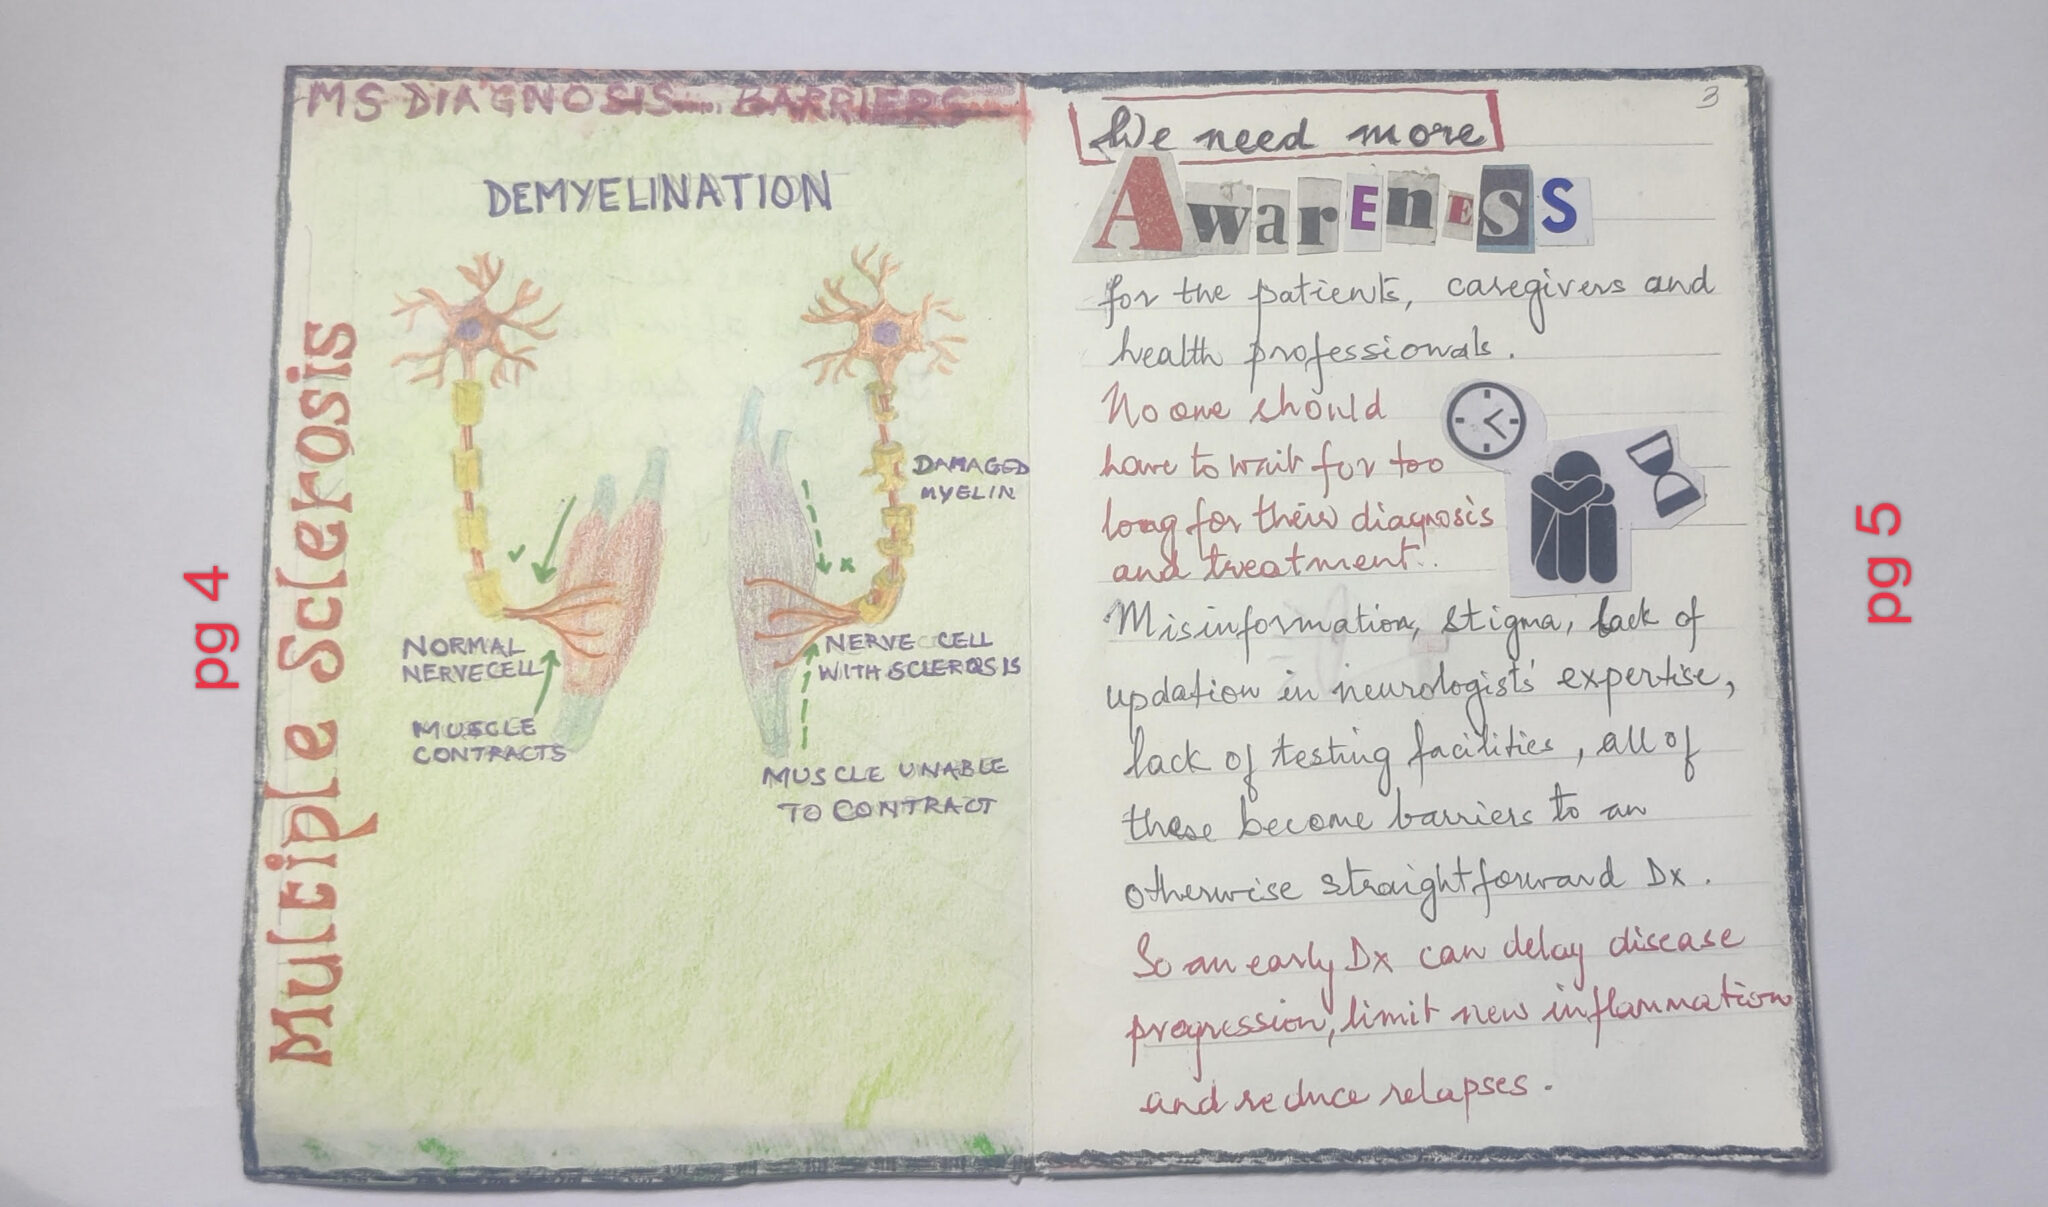 MS DIAGNOSIS.... BARRIERS
DEMYELINATION
Multiple Sclerosis
DAMAGED
MYELIN
NORMAL
NERVECELL
MUSCLE
CONTRACTS
NERVE CELL
WITH SCLEROSIS
MUSCLE UNABLE
TO CONTRACT
pg 4
3
We need more
AwarEnESS
for the patients, caregivers and
health professionals.
No one should
have to wait for too
long for their diagnosis
and treatment..
Misinformation, stigma, lack of
updation in neurologists' expertise,
lack of testing facilities, all of
these become barriers to an
otherwise straightforward Dx.
So an early Dx can delay disease
progression, limit new inflammation
and reduce relapses.
pg 5